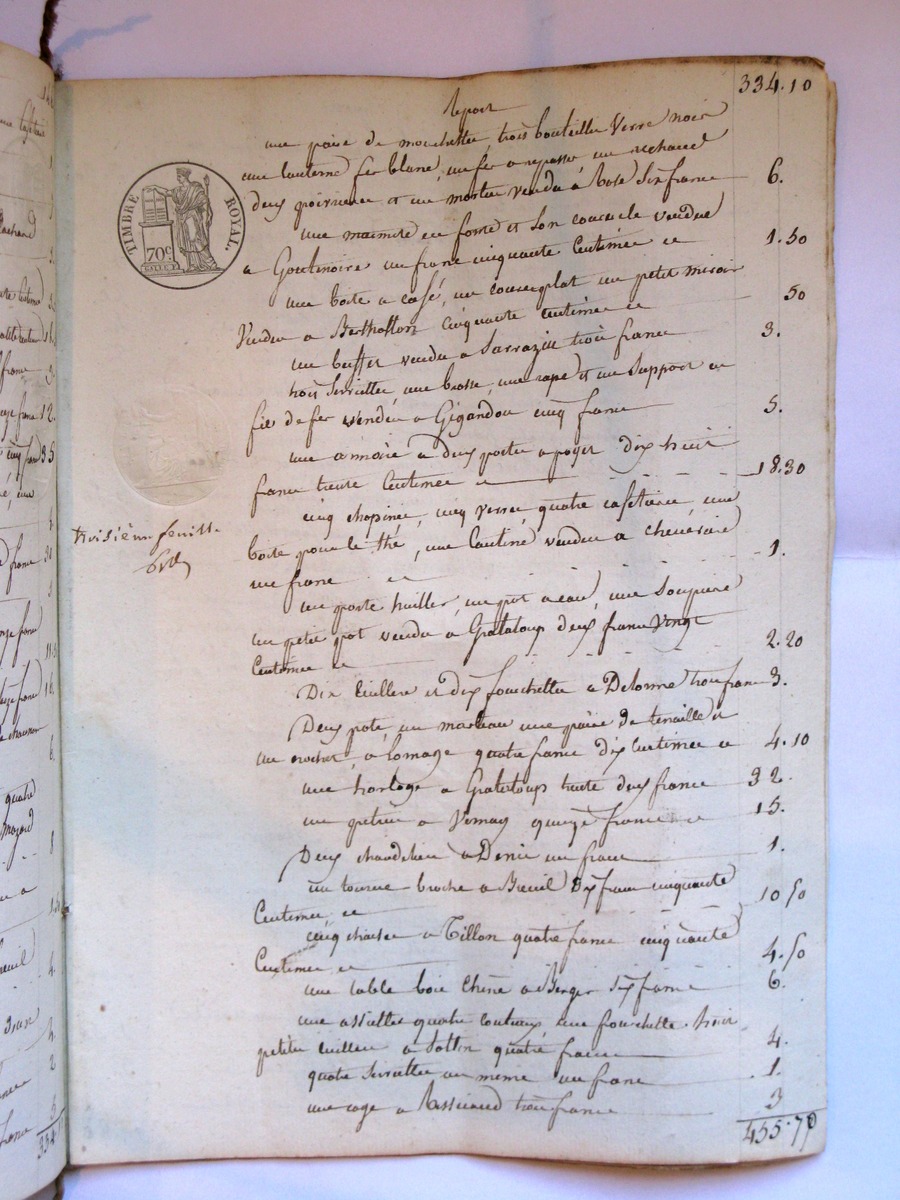 334.10
Report
une paire de mouchette, trois bouteilles verre noir
une lanterne fer blanc, un fer a repasser un rechaud
deux poivriere et un mortier vendu à Rose six francs 6.
une marmite en fonte et son couvercle vendue
a Goutenoire un franc cinquante Centimes 1.50
une boite a café, un couvreplat un petit miroir
Vendu a Berthollon cinquante centimes 50
un buffet vendu a Sarrazin trois francs 3.
trois serviettes, une brosse, une rape et un support en
fil de fer vendu a Gigandon cinq francs 5.
une armoire a deux portes a payer dix huit
francs trente Centimes 18.30
cinq chopines, cinq verres quatre cafetieres, une
boite pour le thé, une cantine vendu a
un franc 1.
un porte huillier, un pot a eau, une soupiere
un petit pot vendu a Grataloup deux francs vingt
Centimes 2.20
Dix cuillere et dix fourchettes a Delorme trois francs 3.
Deux pots, un marteau une paire de tenailles et
un crochet, a Lomage quatre francs dix Centimes 4.10
une horloge a Grataloup trente deux francs 32.
un petrin a Vernay quinze francs 15.
Deux chandeliers a Denis un franc 1.
un tourne broche a Breuil dix francs cinquante
Centimes 10 50
cinq chaises a Tillon quatre francs cinquante
Centimes 4.50
une table bois chene a Berger six francs 6.
une assiettes quatre couteaux une fourchette trois
petites cuillers a Sottin quatre francs 4.
quatre serviettes au meme un franc 1.
une cage a trois francs 3
455.70
TIMBRE ROYAL.
70c.
troisième feuille